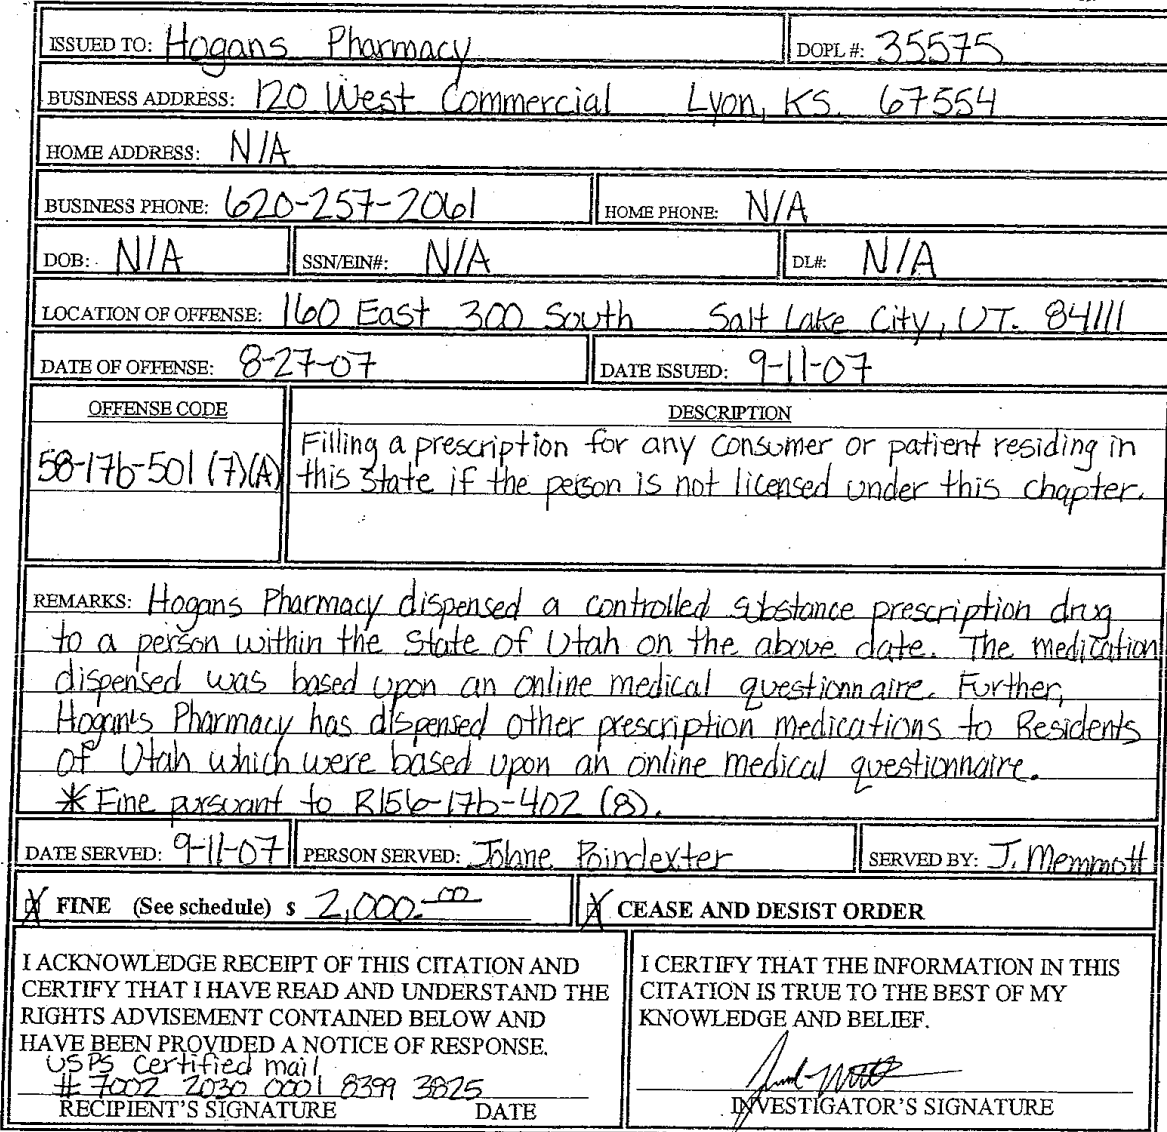 ISSUED TO: Hogans Pharmacy DOPL #: 35575
BUSINESS ADDRESS: 120 West Commercial Lyon, KS. 67554
HOME ADDRESS: N/A
BUSINESS PHONE: 620-257-2061 HOME PHONE: N/A
DOB: N/A SSN/EIN#: N/A DL#: N/A
LOCATION OF OFFENSE: 160 East 300 South Salt Lake City, UT. 84111
DATE OF OFFENSE: 8-27-07 DATE ISSUED: 9-11-07
OFFENSE CODE DESCRIPTION
58-17b-501 (7)(A) Filling a prescription for any consumer or patient residing in
this State if the person is not licensed under this chapter.
REMARKS: Hogans Pharmacy dispensed a controlled substance prescription drug
to a person within the State of Utah on the above date. The medication
dispensed was based upon an online medical questionnaire. Further,
Hogan's Pharmacy has dispensed other prescription medications to Residents
of Utah which were based upon an online medical questionnaire.
* Fine pursuant to R156-17b-402 (8).
DATE SERVED: 9-11-07 PERSON SERVED: Jolane Poindexter SERVED BY: J. Memmott
X FINE (See schedule) $ 2,000.00 X CEASE AND DESIST ORDER
I ACKNOWLEDGE RECEIPT OF THIS CITATION AND
CERTIFY THAT I HAVE READ AND UNDERSTAND THE
RIGHTS ADVISEMENT CONTAINED BELOW AND
HAVE BEEN PROVIDED A NOTICE OF RESPONSE.
USPS Certified mail
# 7002 2030 0001 8399 3825
RECIPIENT'S SIGNATURE DATE
I CERTIFY THAT THE INFORMATION IN THIS
CITATION IS TRUE TO THE BEST OF MY
KNOWLEDGE AND BELIEF.
INVESTIGATOR'S SIGNATURE